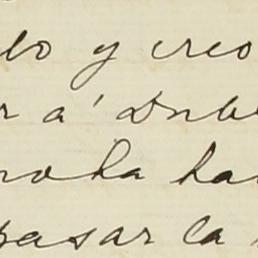 lo y creo
r á Dubl
noha ha
pasar la